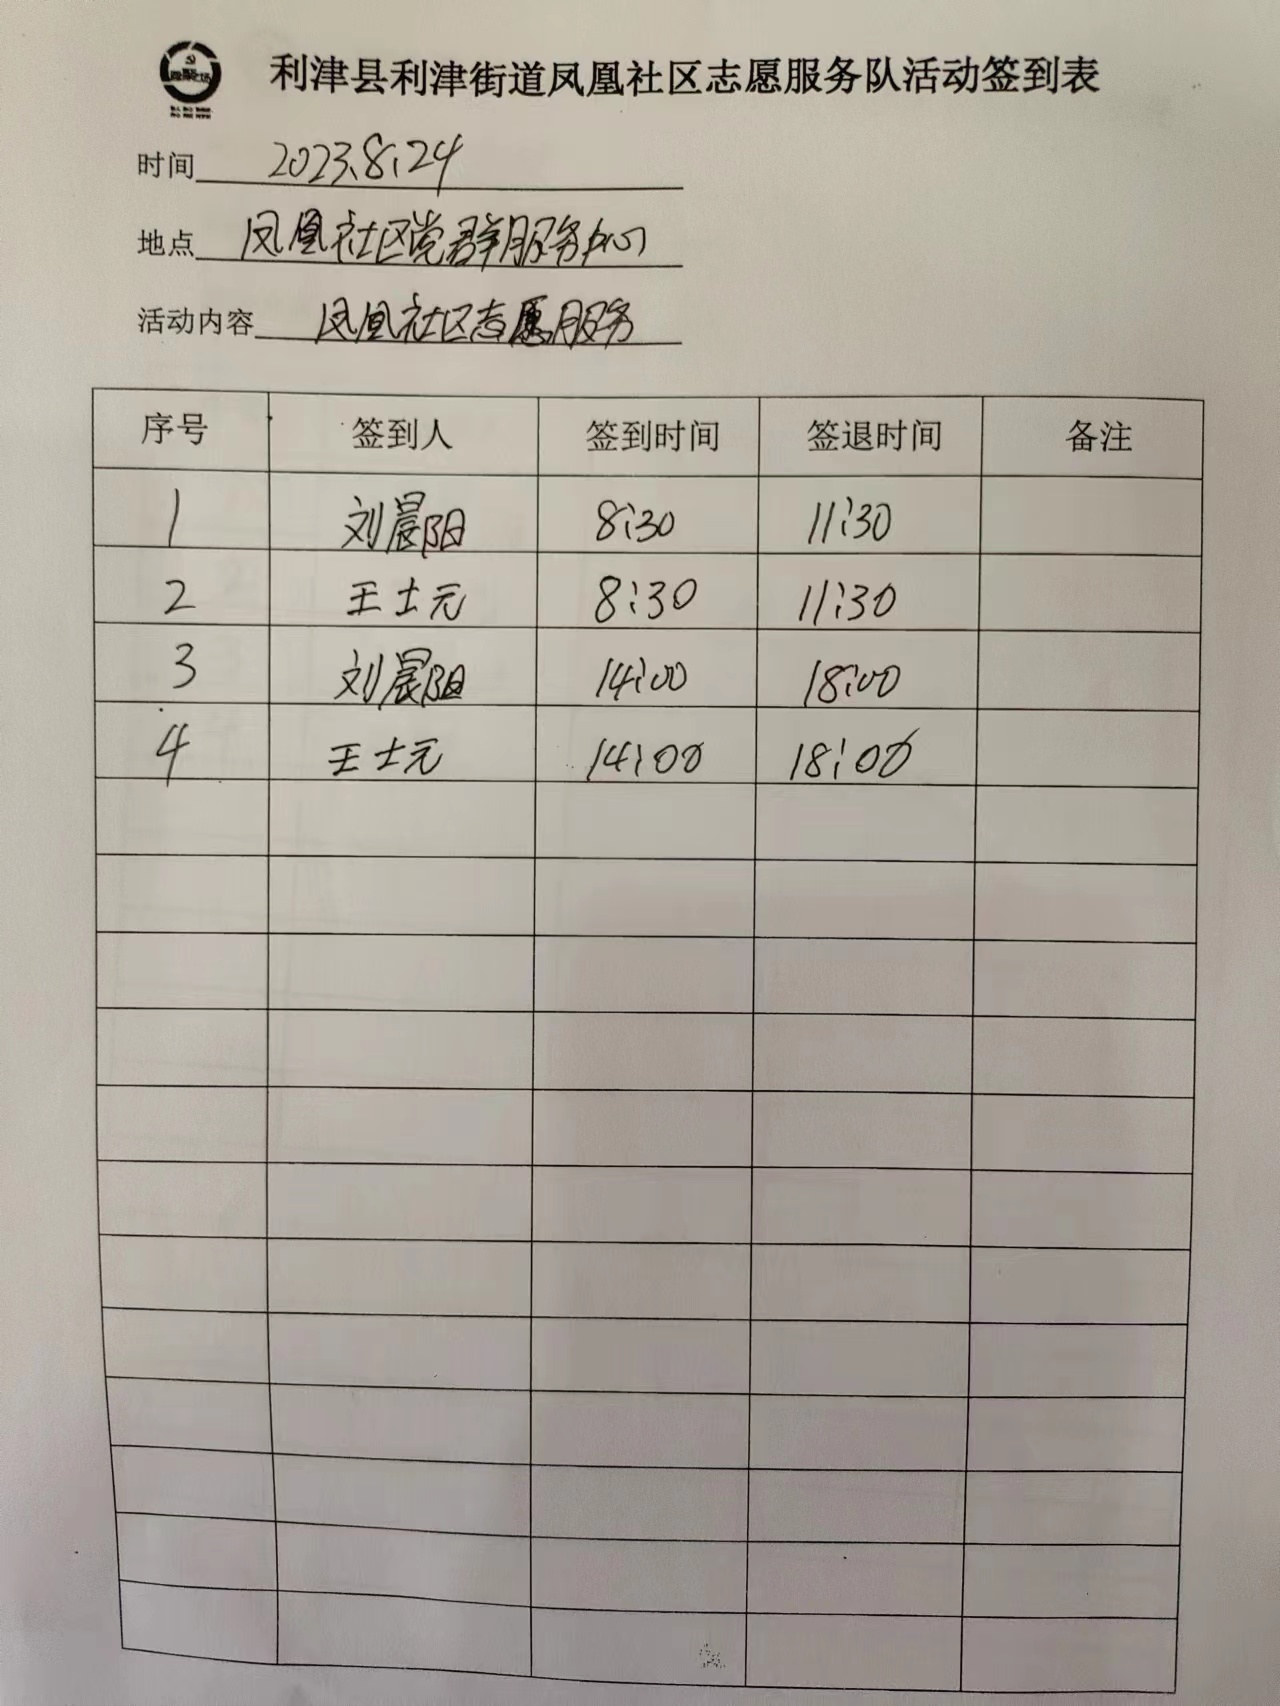 利津县利津街道凤凰社区志愿服务队活动签到表
时间 2023.8.24
地点 凤凰社区党群服务中心
活动内容 凤凰社区志愿服务
序号 签到人 签到时间 签退时间 备注
1 刘晨阳 8:30 11:30
2 王士元 8:30 11:30
3 刘晨阳 14:00 18:00
4 王士元 14:00 18:00